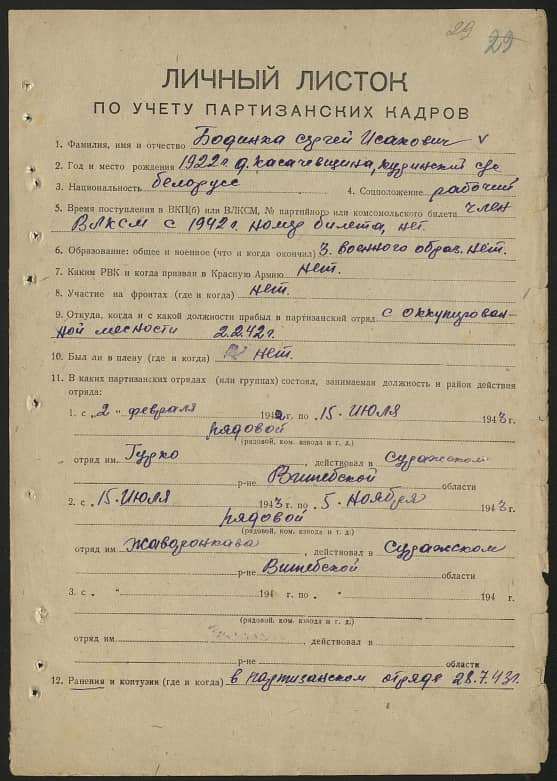 29 29
ЛИЧНЫЙ ЛИСТОК
ПО УЧЕТУ ПАРТИЗАНСКИХ КАДРОВ
1. Фамилия, имя и отчество Бодинка Сергей Исакович v
2. Год и место рождения 1922 г. д. Касачевщина,
3. Национальность белорусс 4. Соцположение рабочий
5. Время поступления в ВКП(б) или ВЛКСМ, № партийного или комсомольского билета член
ВЛКСМ с 1942 г. номер билета, нет.
6. Образование: общее и военное (что и когда окончил) 3. военного образ. нет.
7. Каким РВК и когда призван в Красную Армию нет.
8. Участие на фронтах (где и когда) нет.
9. Откуда, когда и с какой должности прибыл в партизанский отряд с оккупирован-
ной месности 2.2.42 г.
10. Был ли в плену (где и когда) нет.
11. В каких партизанских отрядах (или группах) состоял, занимаемая должность и район действия
отряда:
1. с „2 “ февраля 1942 г. по „15. Июля 1943 г.
рядовой
(рядовой, ком. взвода и т. д.)
отряд им. Гурко , действовал в Суражском
р-не Витебской области
2. с „15. Июля 1943 г. по „5. Ноября 1943 г.
рядовой
(рядовой, ком. взвода и т. д.)
отряд им. Жаворонкава , действовал в Суражском
р-не Витебской области
3. с „ “ 194 г. по „ “ 194 г.
(рядовой, ком. взвода и т. д.)
отряд им. , действовал в
р-не области
12. Ранения и контузии (где и когда) в партизанском отряде 28.7.43 г.